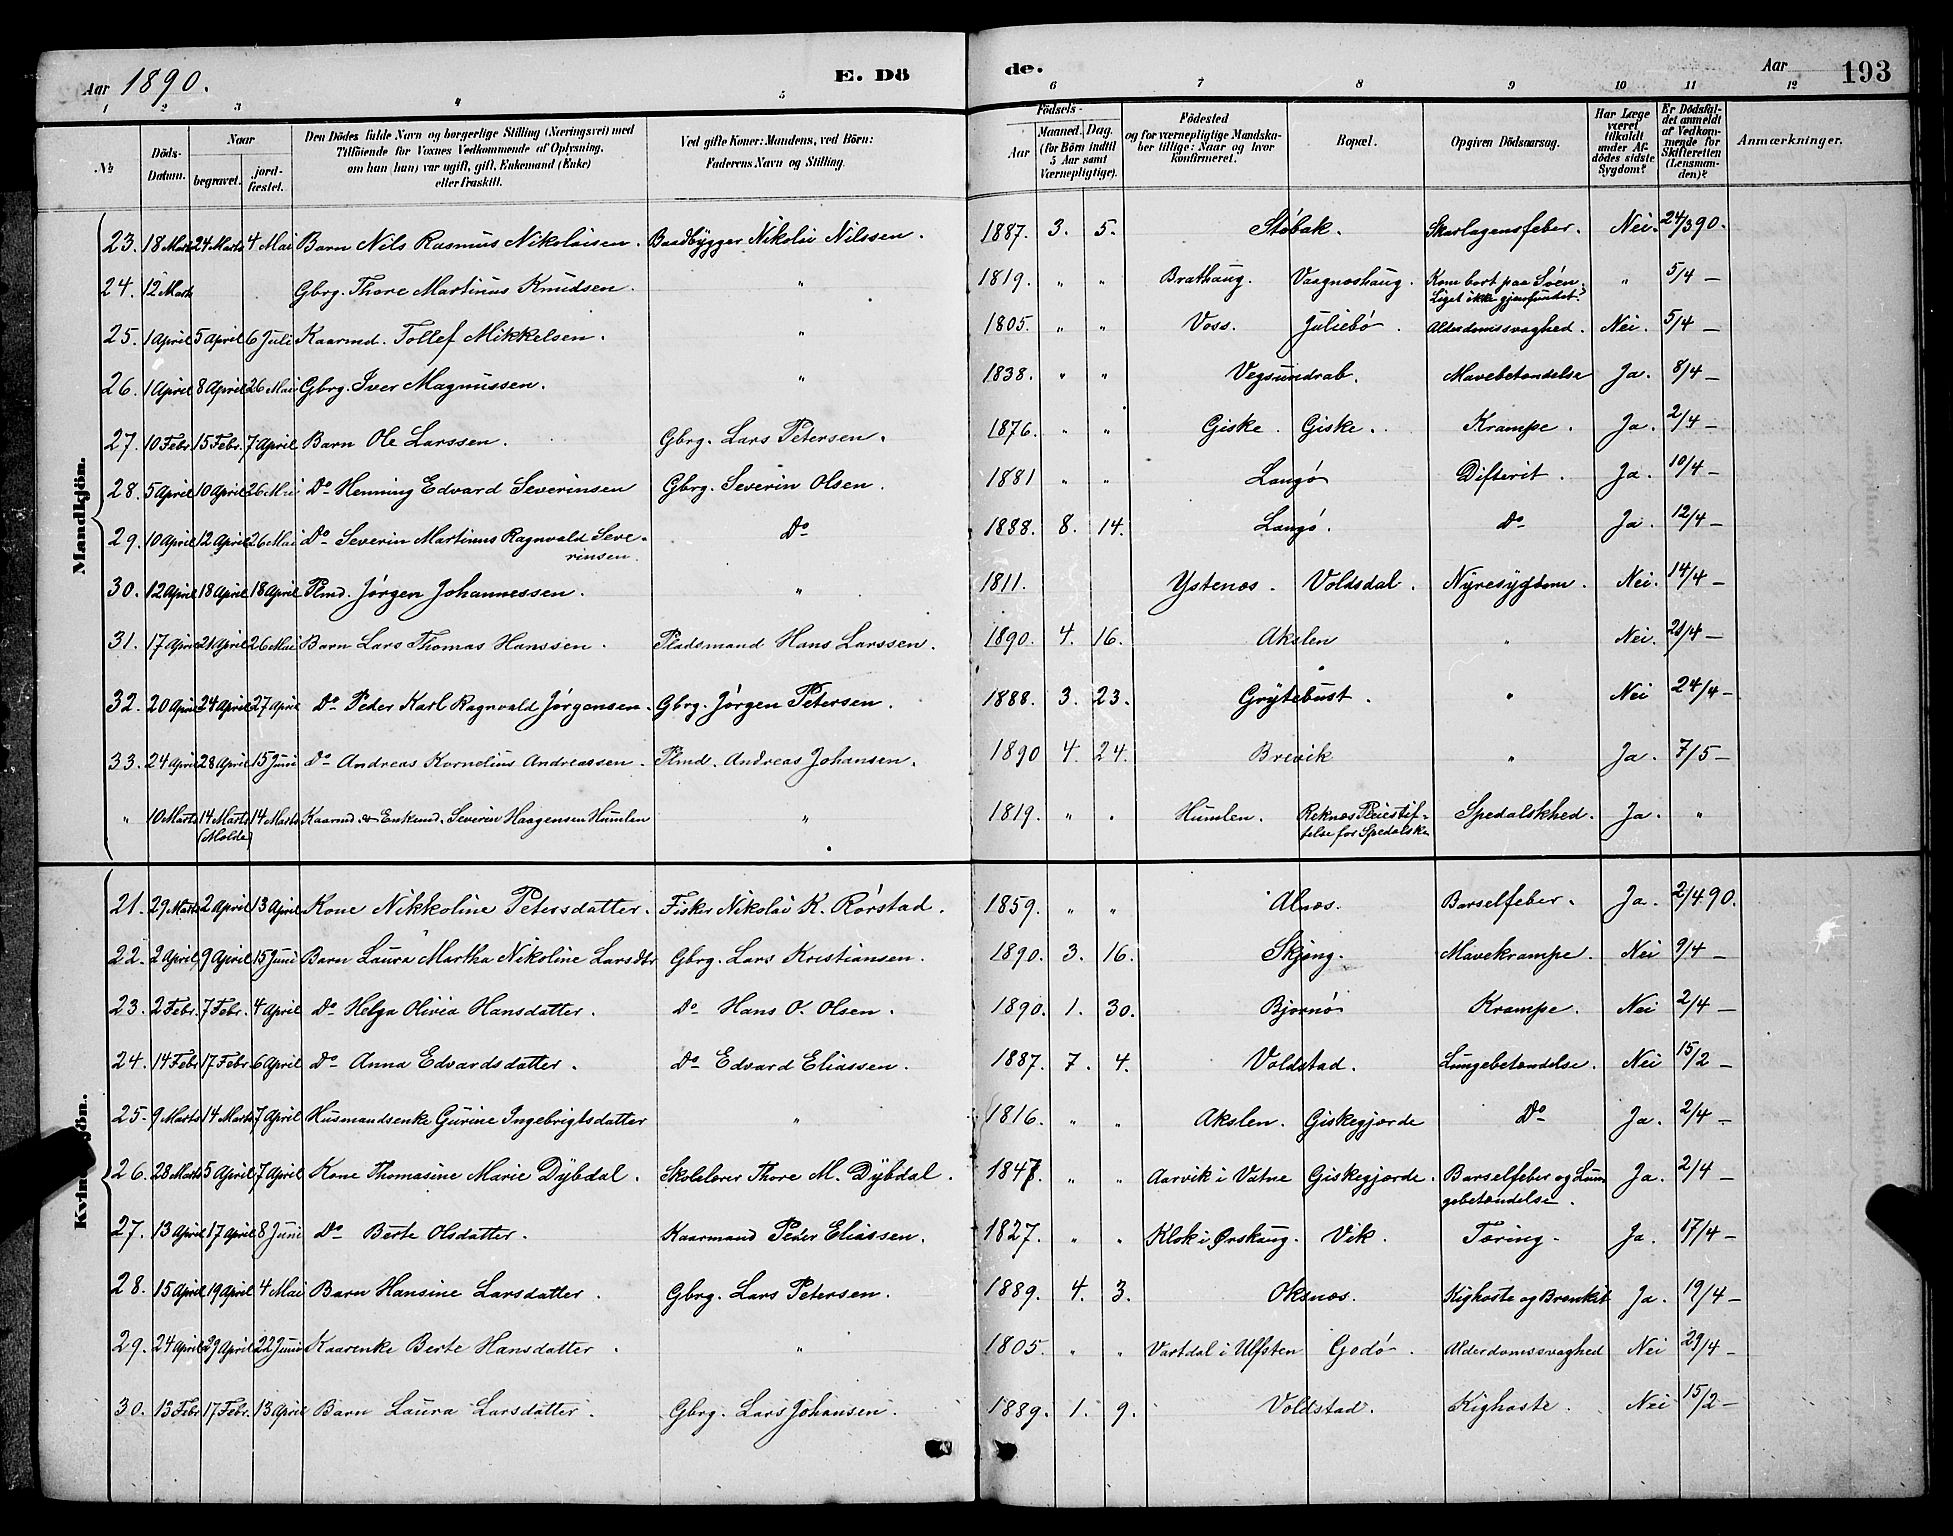 Aar 1890. E. Dö de. Aar 193
1 2 3 4 5 6 7 8 9 10 11 12
№ Döds-Datum. Naar begravet. jord-fæstet. Den Dödes fulde Navn og borgerlige Stilling (Næringsvei) med Tilföiende for Voxnes Vedkommende af Oplysning, om han (hun) var ugift, gift, Enkemand (Enke) eller fraskilt. Ved gifte Koner: Mandens, ved Börn: Faderens Navn og Stilling. Födsels- Aar Maaned. Dag. (for Börn indtil 5 Aar samt Værnepligtige). Födested og for værnepligtige Mandskaber tillige: Naar og hvor konfirmeret. Bopæl. Opgiven Dödsaarsag. Har Læge været tilkaldt under Afdödes sidste Sygdom? Er Dödsfaldet anmeldt af Vedkommende for Skifteretten (Lensmanden)? Anmærkninger.
Mandkjön.
23. 18 Marts 24 Marts 4 Mai Barn Nils Rasmus Nikolaisen. Baadbygger Nikolai Nilssen. 1887. 3. 5. Stóbak. Skarlagensfeber. Nei. 24/3 90.
24. 12 Marts Gbrg. Thore Martinus Knudsen. " 1819. " " Brathaug. Vaagneshaug. Kom bort paa Søen. Liget ikke gjenfundet. " 5/4 —
25. 1 April 5 April 6 Juli Kaarmd. Tollef Mikkelsen. " 1805. " " Voss. Juliebø. Alderdomssvaghed. Nei. 5/4 —
26. 1 April 8 April 26 Mai Gbrg. Iver Magnussen. " 1838. " " Vegsundrab. Mavebetændelse Ja. 8/4 —
27. 10 Febr. 15 Febr. 7 April Barn Ole Larssen. Gbrg. Lars Petersen. 1876. " " Giske. Giske. Krampe. Ja. 2/4 —
28. 5 April 10 April 26 Mai Do Henning Edvard Severinsen Gbrg. Severin Olsen. 1881 " " Langø Difterit. Ja. 10/4 —
29. 10 April 12 April 26 Mai Do Severin Martinus Ragnvald Severinsen. Do 1888. 8. 14. Langó. Do Ja. 12/4 —
30. 12 April 18 April 18 April Plmd. Jørgen Johannessen. " 1811. Ystenæs. Voldsdal. Nyresygdom. Nei. 14/4 —
31. 17 April 21 April 26 Mai Barn Lars Thomas Hanssen. Pladsmand Hans Larssen. 1890. 4. 16. Akslen " Nei. 21/4 —
32. 20 April 24 April 27 April Do Peder Karl Ragnvald Jørgensen. Gbrg. Jørgen Petersen. 1888. 3. 23. Grytebust. " Nei 24/4 —
33. 24 April 28 April 15 Juni Do Andreas Kornelius Andreassen. Plmd. Andreas Johansen. 1890 4. 24. Brevik " Ja. 7/5 —
" 10 Marts 14 Marts (Molde) 14 Marts Kaarmd. & Enkemd. Severin Haagensen Humlen " 1819. " " Humlen. Reknæs Pleiestiftelse for Spedalske Spedalskhed. Ja. "
Kvindekjön.
21. 29 Marts 2 April 13 April Kone Nikkoline Petersdatter. Fisker Nikolai K. Rørstad. 1859. " " Alnæs. Barselfeber. Ja. 2/4 90.
22. 2 April 9 April 15 Juni Barn Laura Martha Nikoline Larsdtr Gbrg. Lars Kristiansen. 1890. 3. 16. Skjong. Mavekrampe. Nei 9/4 —
23. 2 Febr. 7 Febr. 4 April Do Helga Olivia Hansdatter. Do Hans O. Olsen. 1890. 1. 30. Bjornø Krampe. Nei 2/4 —
24. 14 Febr 17 Febr. 6 April Do Anna Edvardsdatter. Do Edvard Eliassen. 1887. 7. 4. Voldstad. Lungebetændelse. Nei 15/2 —
25. 9 Marts 14 Marts 7 April Husmandsenke Gurine Ingebrigtsdatter " 1816. " " Akslen. Giskegjærde Do Ja. 2/4 —
26. 28 Marts 5 April 7 April Kone Thomasine Marie Dybdal. Skolelærer Thore M. Dybdal. 1847. " " Aarvik i Vatne Giskegjærde. Barselfeber og Lungebetændelse. Ja. 2/4 —
27. 13 April 17 April 8 Juni Do Berte Olsdatter. Kaarmand Peder Eliassen. 1827. " " Klok i Ørskaug. Vik. Tæring. Ja. 17/4 —
28. 15 April 19 April 4 Mai Barn Hansine Larsdatter. Gbrg. Lars Petersen. 1889. 4. 3. Oksnæs. Kighoste og Bronkit Ja. 19/4 —
29. 24 April 29 April 22 Juni Kaarenke Berte Hansdatter. " 1805. " " Vartdal i Ulfsten Godø. Alderdomssvaghed Nei 29/4 —
30. 13 Febr 17 Febr. 13 April Barn Laura Larsdatter. Gbrg. Lars Johansen. 1889. 1. 9. Voldstad. Kighoste. Nei 15/2 —